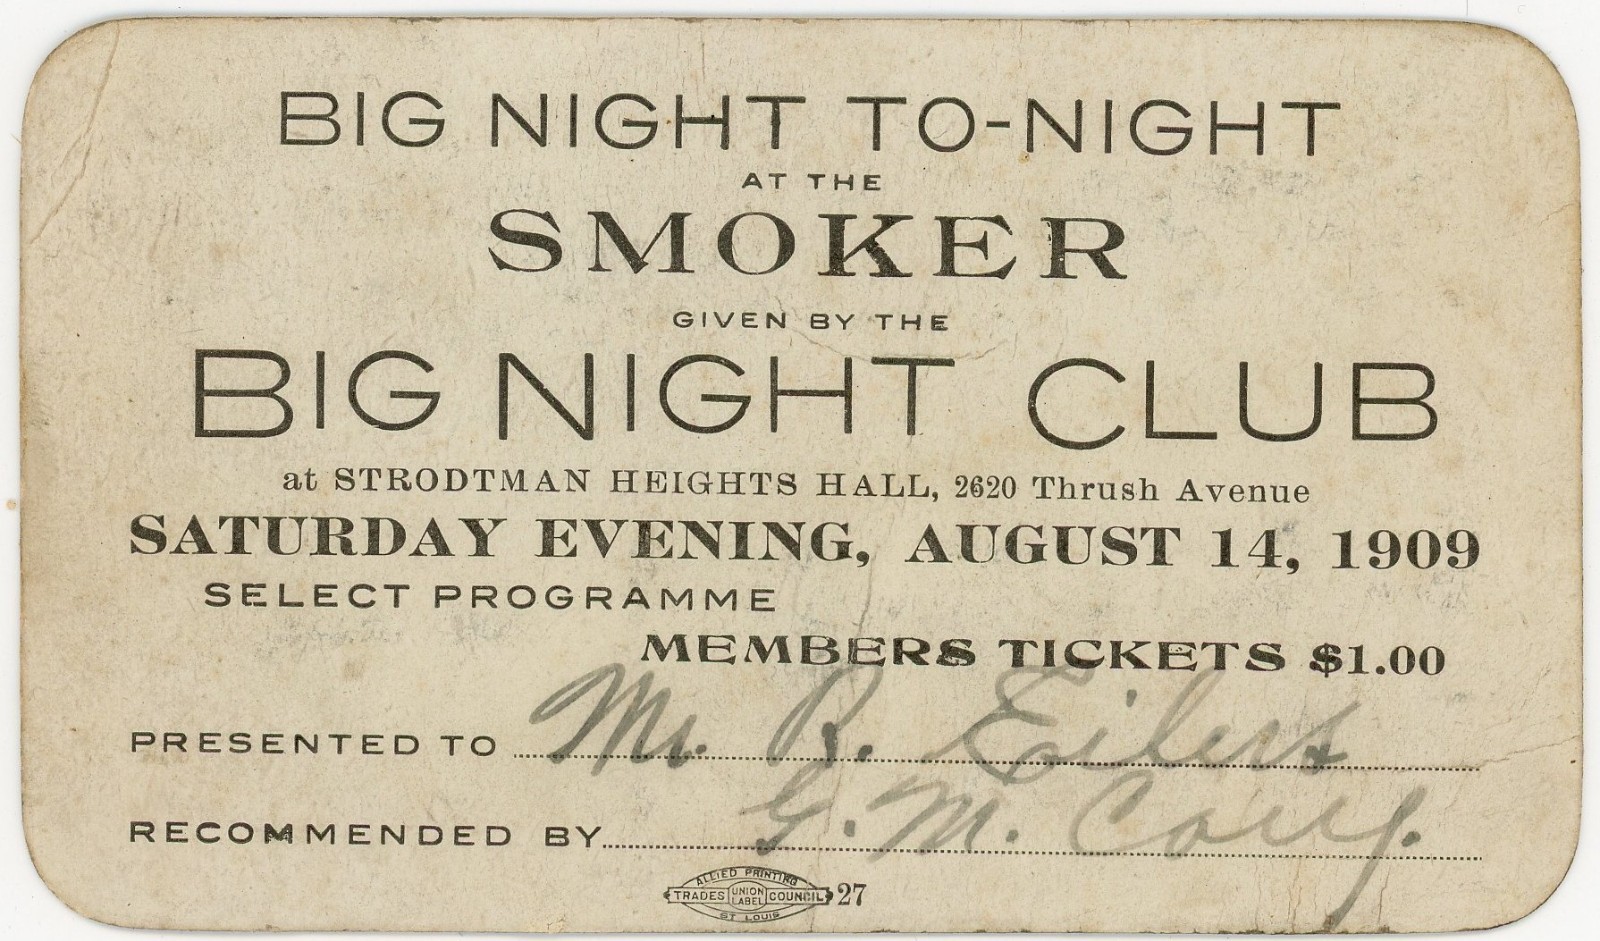 BIG NIGHT TO-NIGHT
AT THE
SMOKER
GIVEN BY THE
BIG NIGHT CLUB
at STRODTMAN HEIGHTS HALL, 2620 Thrush Avenue
SATURDAY EVENING, AUGUST 14, 1909
SELECT PROGRAMME
MEMBERS TICKETS $1.00
PRESENTED TO Mr. R. Eilers
RECOMMENDED BY G. M.
ALLIED PRINTING
TRADES UNION LABEL COUNCIL 27
ST LOUIS